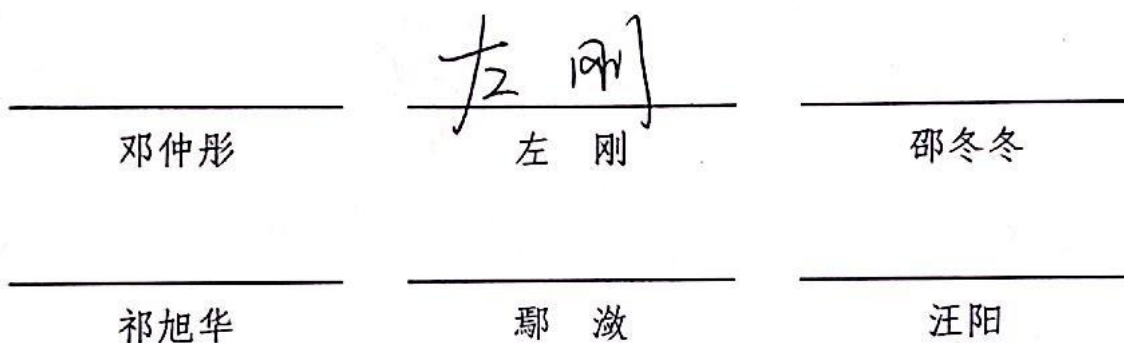 左刚
邓仲彤 左 刚 邵冬冬
祁旭华 鄢 潋 汪阳